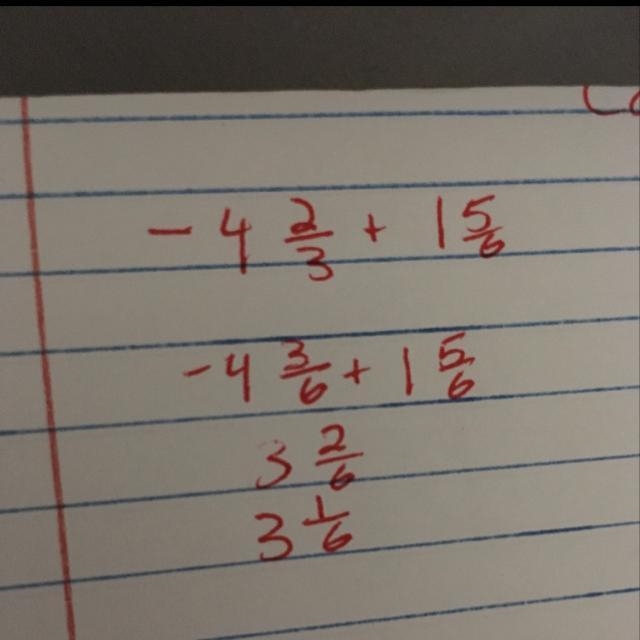 - 4 2/3 + 1 5/6
- 4 3/6 + 1 5/6
3 2/6
3 1/6